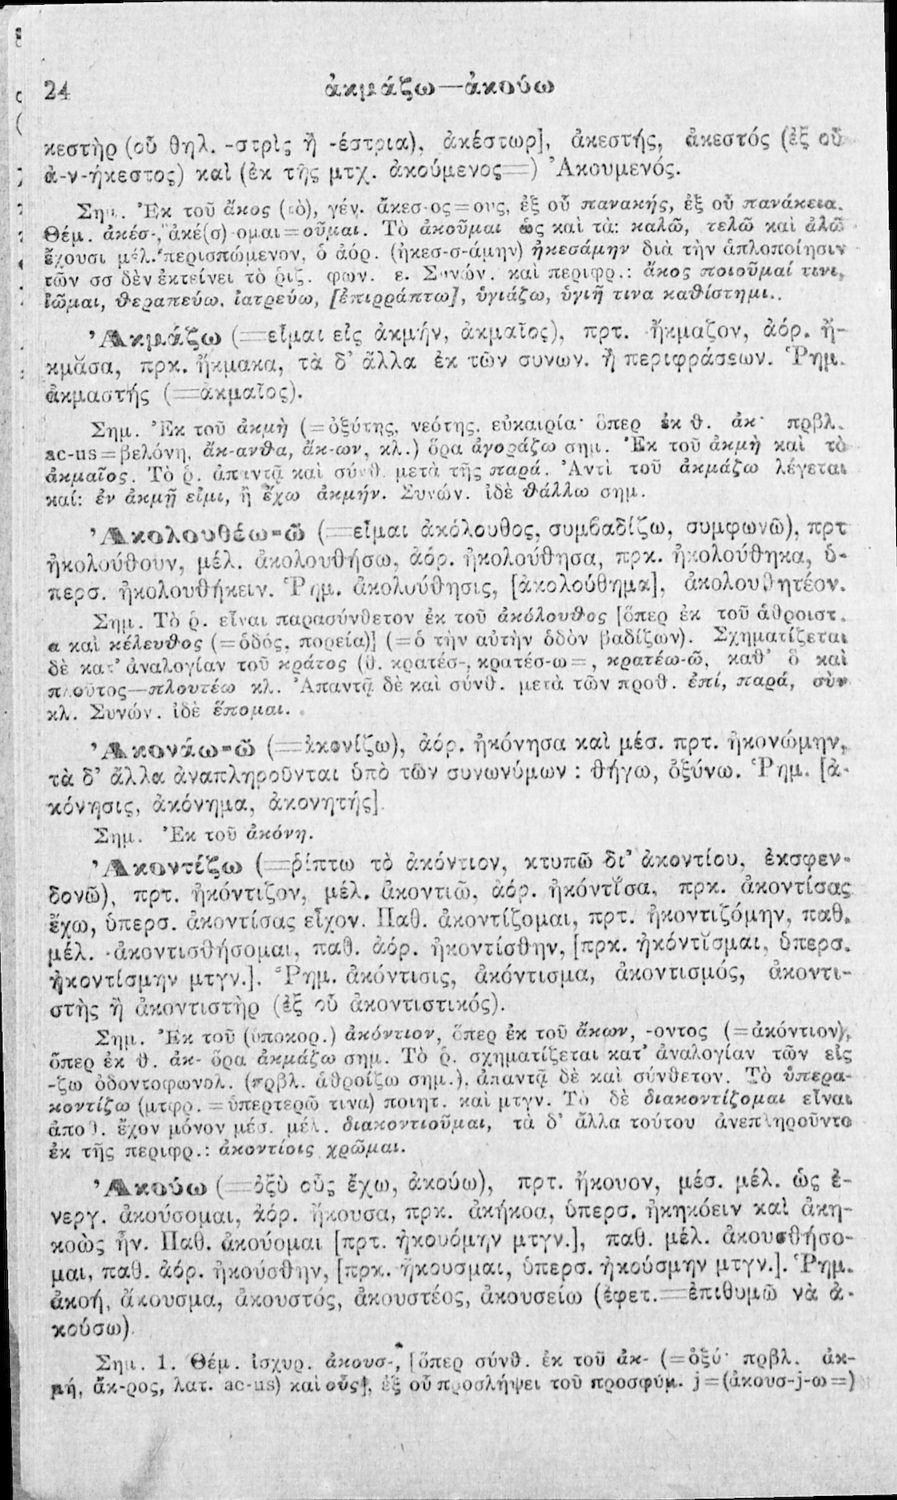 24 ἀκμάζω—ἀκούω
κεστὴρ (οὗ θηλ. -στρὶς ἢ -έστρια), ἀκέστωρ], ἀκεστής, ἀκεστός (ἐξ οὗ
ἀ-ν-ήκεστος) καὶ (ἐκ τῆς μτχ. ἀκούμενος=) Ἀκουμενός.
Σημ. Ἐκ τοῦ ἄκος (τὸ), γέν. ἄκεσ-ος=ους, ἐξ οὗ πανακής, ἐξ οὗ πανάκεια.
Θέμ. ἀκέσ-, ἀκέ(σ)-ομαι=οῦμαι. Τὸ ἀκοῦμαι ὡς καὶ τὰ: καλῶ, τελῶ καὶ ἁλῶ
ἔχουσι μέλ. περισπώμενον, ὁ ἀόρ. (ἠκεσ-σ-άμην) ἠκεσάμην διὰ τὴν ἁπλοποίησιν
τῶν σσ δὲν ἐκτείνει τὸ ῥιζ. φων. ε. Συνών. καὶ περιφρ.: ἄκος ποιοῦμαί τινι,
ἰῶμαι, θεραπεύω, ἰατρεύω, [ἐπιρράπτω], ὑγιάζω, ὑγιῆ τινα καθίστημι..
Ἀκμάζω (=εἶμαι εἰς ἀκμήν, ἀκμαῖος), πρτ. ἤκμαζον, ἀόρ. ἤ-
κμᾰσα, πρκ. ἤκμακα, τὰ δ' ἄλλα ἐκ τῶν συνων. ἢ περιφράσεων. Ῥημ.
ἀκμαστής (=ἀκμαῖος).
Σημ. Ἐκ τοῦ ἀκμὴ (=ὀξύτης, νεότης, εὐκαιρία· ὅπερ ἐκ θ. ἀκ· πρβλ.
ac-us=βελόνη, ἄκ-ανθα, ἄκ-ων, κλ.) ὅρα ἀγοράζω σημ. Ἐκ τοῦ ἀκμὴ καὶ τὸ
ἀκμαῖος. Τὸ ῥ. ἀπαντᾷ καὶ σύνθ. μετὰ τῆς παρά. Ἀντὶ τοῦ ἀκμάζω λέγεται
καί: ἐν ἀκμῇ εἰμι, ἢ ἔχω ἀκμήν. Συνών. ἰδὲ θάλλω σημ.
Ἀκολουθέω-ῶ (=εἶμαι ἀκόλουθος, συμβαδίζω, συμφωνῶ), πρτ
ἠκολούθουν, μέλ. ἀκολουθήσω, ἀόρ. ἠκολούθησα, πρκ. ἠκολούθηκα, ὑ-
περσ. ἠκολουθήκειν. Ῥημ. ἀκολούθησις, [ἀκολούθημα], ἀκολουθητέον.
Σημ. Τὸ ῥ. εἶναι παρασύνθετον ἐκ τοῦ ἀκόλουθος [ὅπερ ἐκ τοῦ ἀθροιστ.
α καὶ κέλευθος (=ὁδός, πορεία)] (=ὁ τὴν αὐτὴν ὁδὸν βαδίζων). Σχηματίζεται
δὲ κατ' ἀναλογίαν τοῦ κράτος (θ. κρατέσ-, κρατέσ-ω=, κρατέω-ῶ, καθ' ὃ καὶ
πλοῦτος—πλουτέω κλ. Ἀπαντᾷ δὲ καὶ σύνθ. μετὰ τῶν προθ. ἐπί, παρά, σὺν
κλ. Συνών. ἰδὲ ἕπομαι.
Ἀκονάω-ῶ (=ἀκονίζω), ἀόρ. ἠκόνησα καὶ μέσ. πρτ. ἠκονώμην,
τὰ δ' ἄλλα ἀναπληροῦνται ὑπὸ τῶν συνωνύμων : θήγω, ὀξύνω. Ῥημ. [ἀ-
κόνησις, ἀκόνημα, ἀκονητής].
Σημ. Ἐκ τοῦ ἀκόνη.
Ἀκοντίζω (=ῥίπτω τὸ ἀκόντιον, κτυπῶ δι' ἀκοντίου, ἐκσφεν-
δονῶ), πρτ. ἠκόντιζον, μέλ. ἀκοντιῶ, ἀόρ. ἠκόντῐσα, πρκ. ἀκοντίσας
ἔχω, ὑπερσ. ἀκοντίσας εἶχον. Παθ. ἀκοντίζομαι, πρτ. ἠκοντιζόμην, παθ.
μέλ. ἀκοντισθήσομαι, παθ. ἀόρ. ἠκοντίσθην, [πρκ. ἠκόντισμαι, ὑπερσ.
ἠκοντίσμην μτγν.]. Ῥημ. ἀκόντισις, ἀκόντισμα, ἀκοντισμός, ἀκοντι-
στὴς ἢ ἀκοντιστὴρ (ἐξ οὗ ἀκοντιστικός).
Σημ. Ἐκ τοῦ (ὑποκορ.) ἀκόντιον, ὅπερ ἐκ τοῦ ἄκων, -οντος (=ἀκόντιον),
ὅπερ ἐκ θ. ἀκ- ὅρα ἀκμάζω σημ. Τὸ ῥ. σχηματίζεται κατ' ἀναλογίαν τῶν εἰς
-ζω ὀδοντοφωνολ. (πρβλ. ἀθροίζω σημ.), ἀπαντᾷ δὲ καὶ σύνθετον. Τὸ ὑπερα-
κοντίζω (μτφρ. =ὑπερτερῶ τινα) ποιητ. καὶ μτγν. Τὸ δὲ διακοντίζομαι εἶναι
ἀποθ. ἔχον μόνον μέσ. μέλ. διακοντιοῦμαι, τὰ δ' ἄλλα τούτου ἀνεπληροῦντο
ἐκ τῆς περιφρ.: ἀκοντίοις χρῶμαι.
Ἀκούω (=ὀξὺ οὖς ἔχω, ἀκούω), πρτ. ἤκουον, μέσ. μέλ. ὡς ἐ-
νεργ. ἀκούσομαι, ἀόρ. ἤκουσα, πρκ. ἀκήκοα, ὑπερσ. ἠκηκόειν καὶ ἀκη-
κοὼς ἦν. Παθ. ἀκούομαι [πρτ. ἠκουόμην μτγν.], παθ. μέλ. ἀκουσθήσο-
μαι, παθ. ἀόρ. ἠκούσθην, [πρκ. ἤκουσμαι, ὑπερσ. ἠκούσμην μτγν.]. Ῥημ.
ἀκοή, ἄκουσμα, ἀκουστός, ἀκουστέος, ἀκουσείω (ἐφετ.=ἐπιθυμῶ νὰ ἀ-
κούσω).
Σημ. 1. Θέμ. ἰσχυρ. ἀκουσ-, [ὅπερ σύνθ. ἐκ τοῦ ἀκ- (=ὀξύ· πρβλ. ἀκ-
μή, ἄκ-ρος, λατ. ac-us) καὶ οὖς], ἐξ οὗ προσλήψει τοῦ προσφύμ. j=(ἀκουσ-j-ω=)